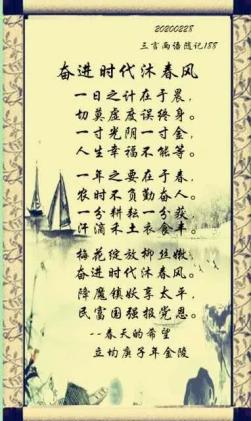 20200228
三言两语随记188
奋进时代沐春风
一日之计在于晨,
切莫虚度误终身。
一寸光阴一寸金,
人生幸福不能等。
一年之要在于春,
农时不负勤奋人。
一分耕耘一分获,
汗滴禾土衣食丰。
梅花绽放柳丝嫩,
奋进时代沐春风。
降魔镇妖享太平,
民富国强报党恩。
--春天的希望
立均庚子年金陵